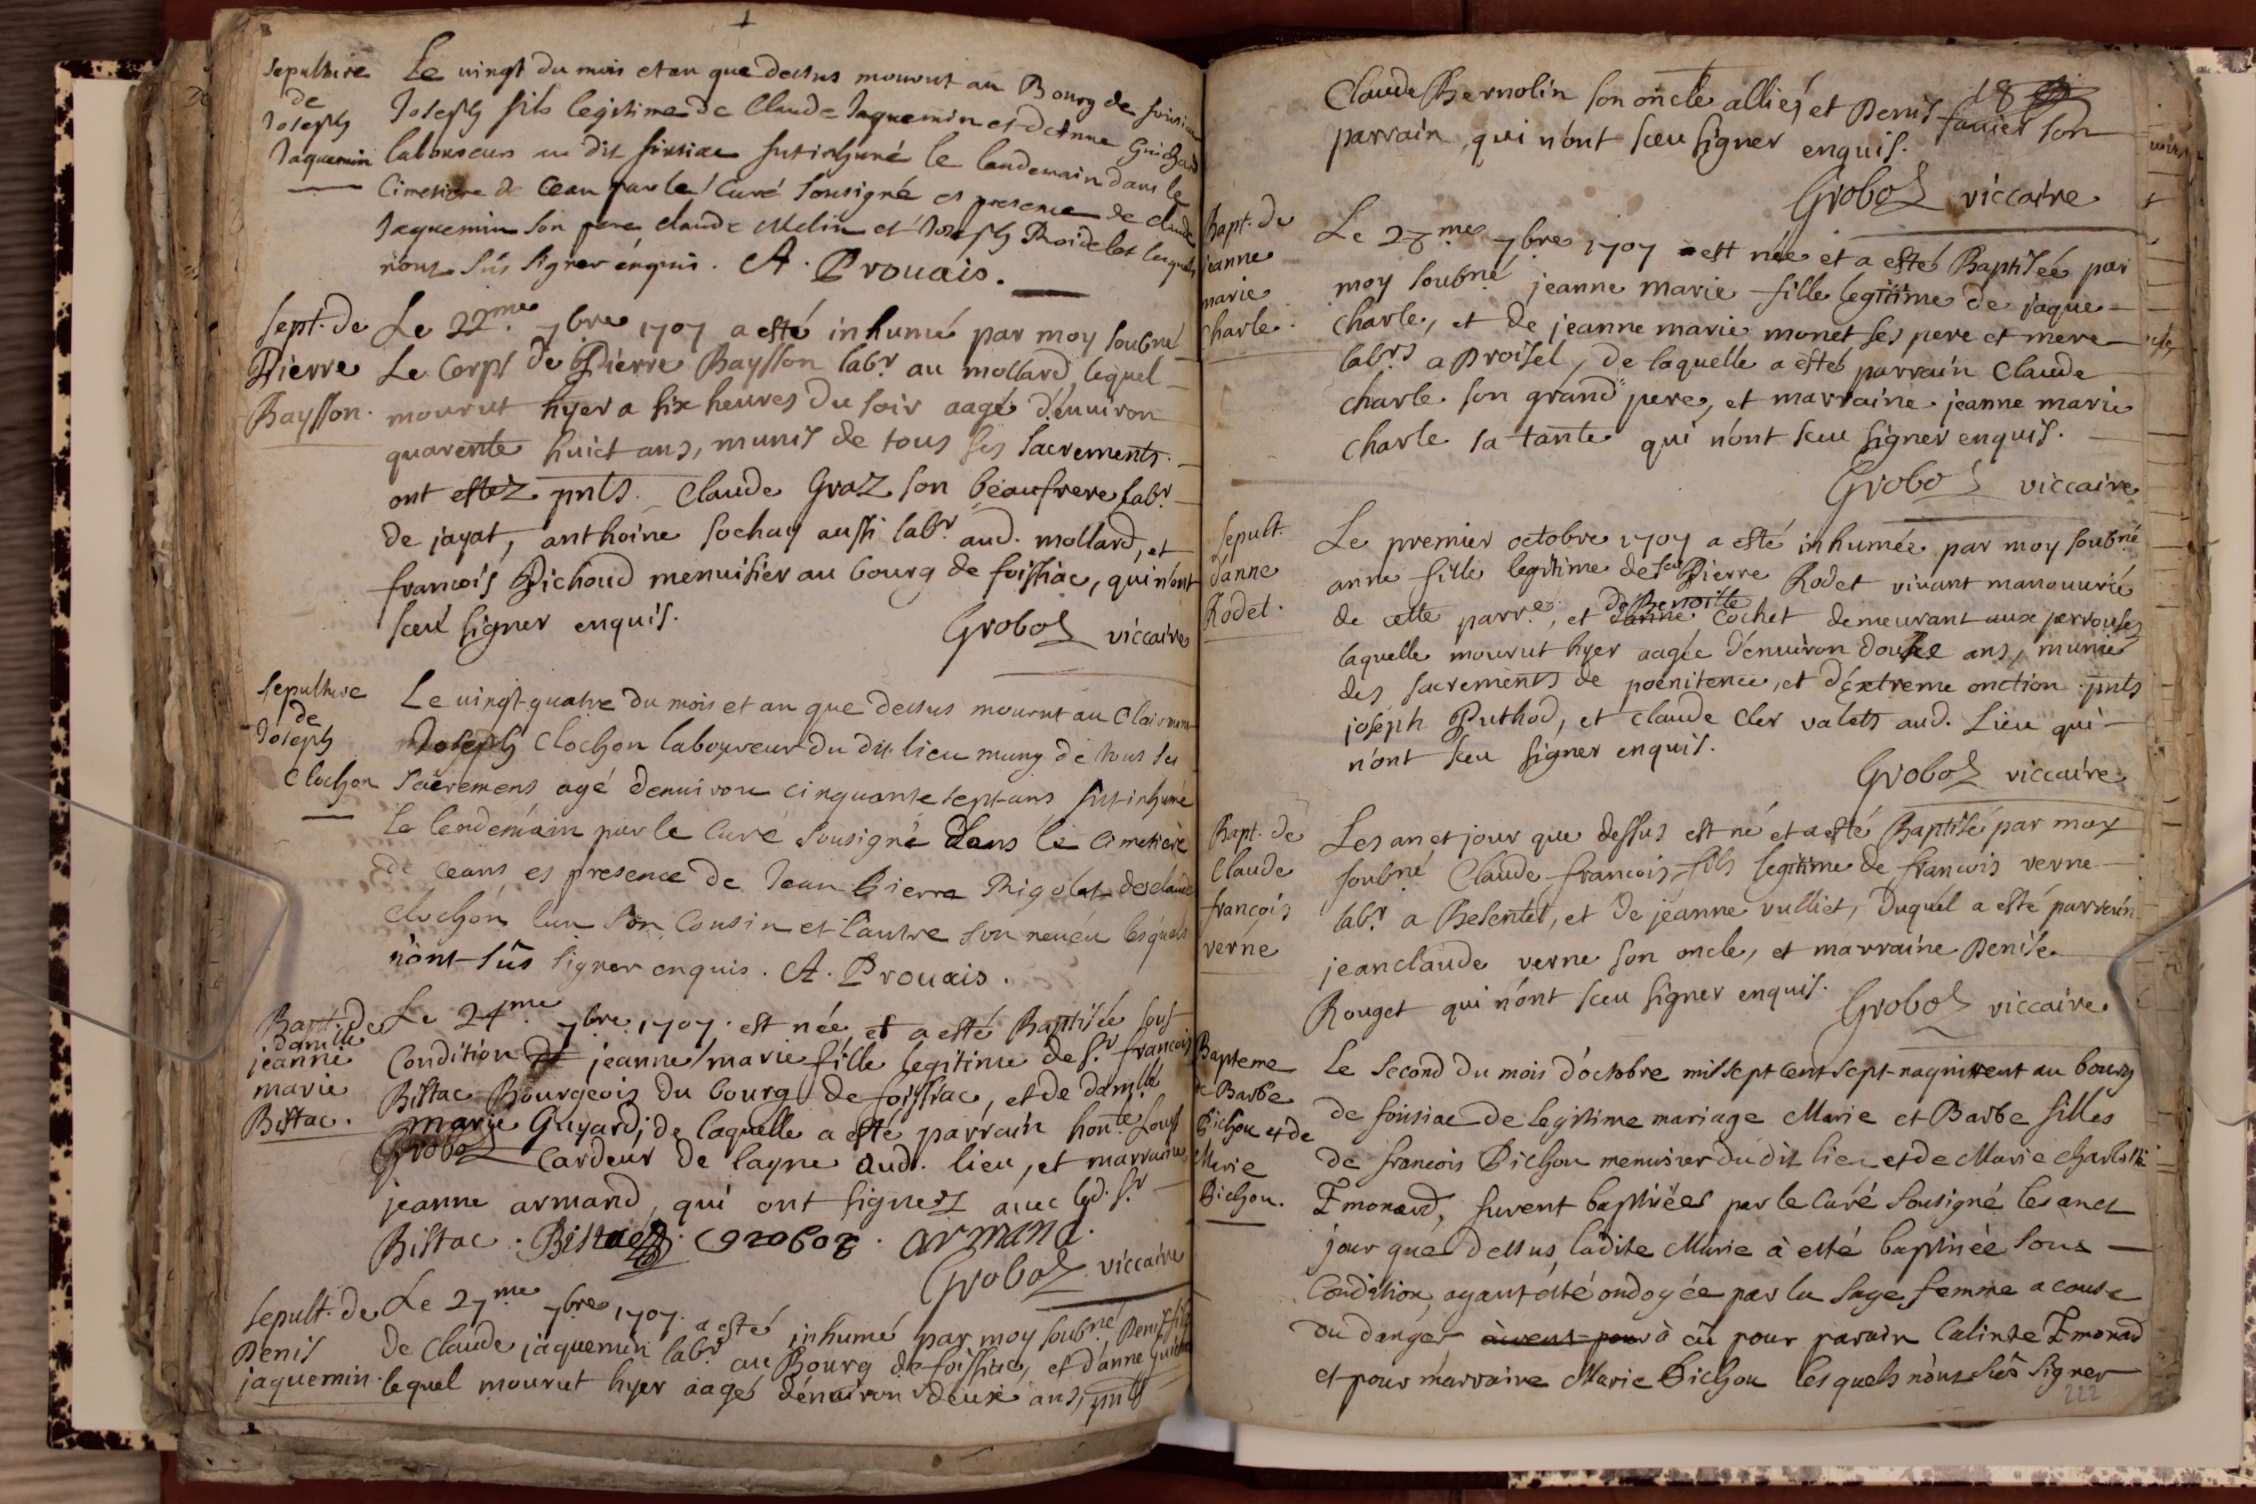 Sepulture
de
Joseph
Jaquemin
Le vingt du mois et an que dessus mourut au Bourg de foissia
Joseph fils legitime de Claude Jaquemin et d'Anne Guichard
laboureurs au dit foissiac fut inhumé le lendemain dans le
Cimetiere de Cean par le Curé sousigné es presence de claude
Jaquemin son pere claude Melin et Joseph Roidelet lesquels
n'ont sûs signer enquis. A. Prouais.
Sept. de
Pierre
Baysson.
Le 22me. 7bre 1707 a esté inhumé par moy soubné
Le Corps de Pierre Baysson labr. au mollard, lequel
mourut hyer a six heures du soir aagé d'enuiron
quarente huict ans, munis de tous ses sacrements.
ont estez pnts. Claude Graz son beaufrere labr.
de jayat, anthoine sochay aussi labr. aud. mollard, et
francois Pichoud menuisier au bourg de foissiac, qui n'ont
sceu signer enquis.
Groboz viccaire
Sepulture
de
Joseph
Clochon
Le vingt quatre du mois et an que dessus mourut au
Joseph Clochon laboureur du dit lieu muny de tous ses
sacremens agé denuiron cinquante sept ans fut inhumé
le lendemain par le Curé sousigné dans le Cimetiere
de ceans es presence de Jean Pierre Rigolet de claude
Clochon l'un son Cousin et l'autre son neueu lesquels
n'ont sûs signer enquis. A. Prouais.
Bapt. de
damlle
jeanne
marie
Bistac.
Le 24me. 7bre. 1707. est née et a esté Baptisée sous
Condition jeanne marie fille legitime de sr. francois
Bistac Bourgeois du bourg de foissiac, et de damlle
marie Guyard; de laquelle a esté parrain honte. Louis
Groboz Cardeur de layne aud. lieu, et marraine
jeanne armand, qui ont signez auec led. sr.
Bistac. Bistac. Groboz. armand.
Groboz viccaire
Sepult. de
Denis
jaquemin.
Le 27me. 7bre 1707. a esté inhumé par moy soubné Denis fils
de Claude jaquemin labr. au Bourg de foissiac, et d'anne guichard
lequel mourut hyer aagé d'enuiron deux ans, pnts
Claude Bernolin son oncle alliés, et Denis fauier son 18
parrain, qui n'ont sceu signer enquis.
Groboz viccaire
Bapt. de
jeanne
marie
charle.
Le 28me 7bre 1707 est née et a esté Baptisée par
moy soubné jeanne marie fille legitime de jaque
charle, et de jeanne marie monet ses pere et mere
labrs a Proisel, de laquelle a esté parrain Claude
charle son grand pere, et marraine jeanne marie
charle sa tante qui n'ont sceu signer enquis.
Groboz viccaire
Sepult.
d'anne
Rodet.
Le premier octobre 1707 a esté inhumée par moy soubné
anne fille legitime de feu Pierre Rodet viuant manouurié
de cette parre., et de Benoitte Cochet demeurant aux perrouses
laquelle mourut hyer aagée d'enuiron douse ans, munie
des sacrements de poenitence, et d'extreme onction. pnts
joseph Puthod, et claude Cler valets aud. Lieu qui
n'ont sceu signer enquis.
Groboz viccaire
Bapt. de
Claude
françois
verne
Les an et jour que dessus est né et a esté Baptisé par moy
soubné Claude francois fils legitime de francois verne
labr. a Besentet, et de jeanne vulliet, duquel a esté parrein
jeanclaude verne son oncle, et marraine Denise
Rouget qui n'ont sceu signer enquis.
Groboz viccaire
Bapteme
de Barbe
Pichou et de
Marie
Pichou.
Le second du mois d'octobre mil sept cent sept naquirent au bourg
de foissiac de legitime mariage Marie et Barbe filles
de francois Pichou menuisier du dit lieu et de Marie charlotte
Emonard, furent baptisées par le Curé sousigné les an et
jour que dessus, ladite Marie à esté baptisée sous
Condition, ayant été ondoyée par la sage femme a cause
du danger à eû pour parain Emonard
et pour marraine Marie Pichou lesquels n'ont sûs signer
222